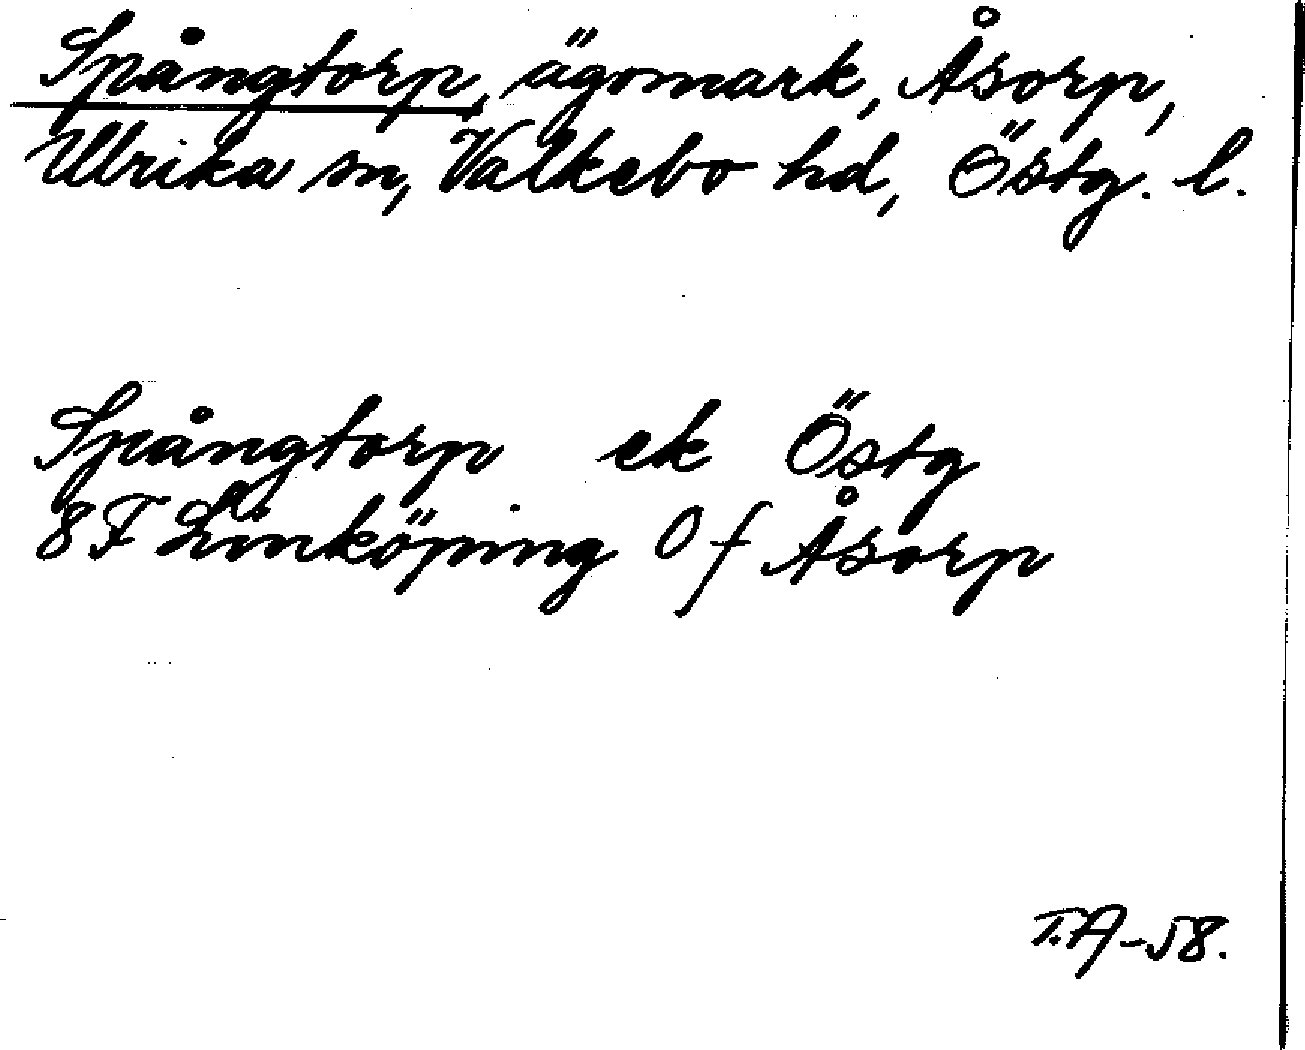 Spångtorp, ägomark, Åsorp,
Ulrika sn, Valkebo hd, Östg. l.
Spångtorp ek Östg
8F Linköping 0f Åsorp
T.A-58.